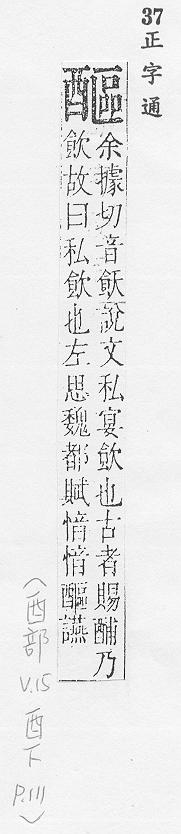 37 正字通
醧
余據切音飫說文私宴飲也古者賜酺乃
飲故曰私飲也左思魏都賦愔愔醧讌
(酉部 V.15 酉下 P.111)